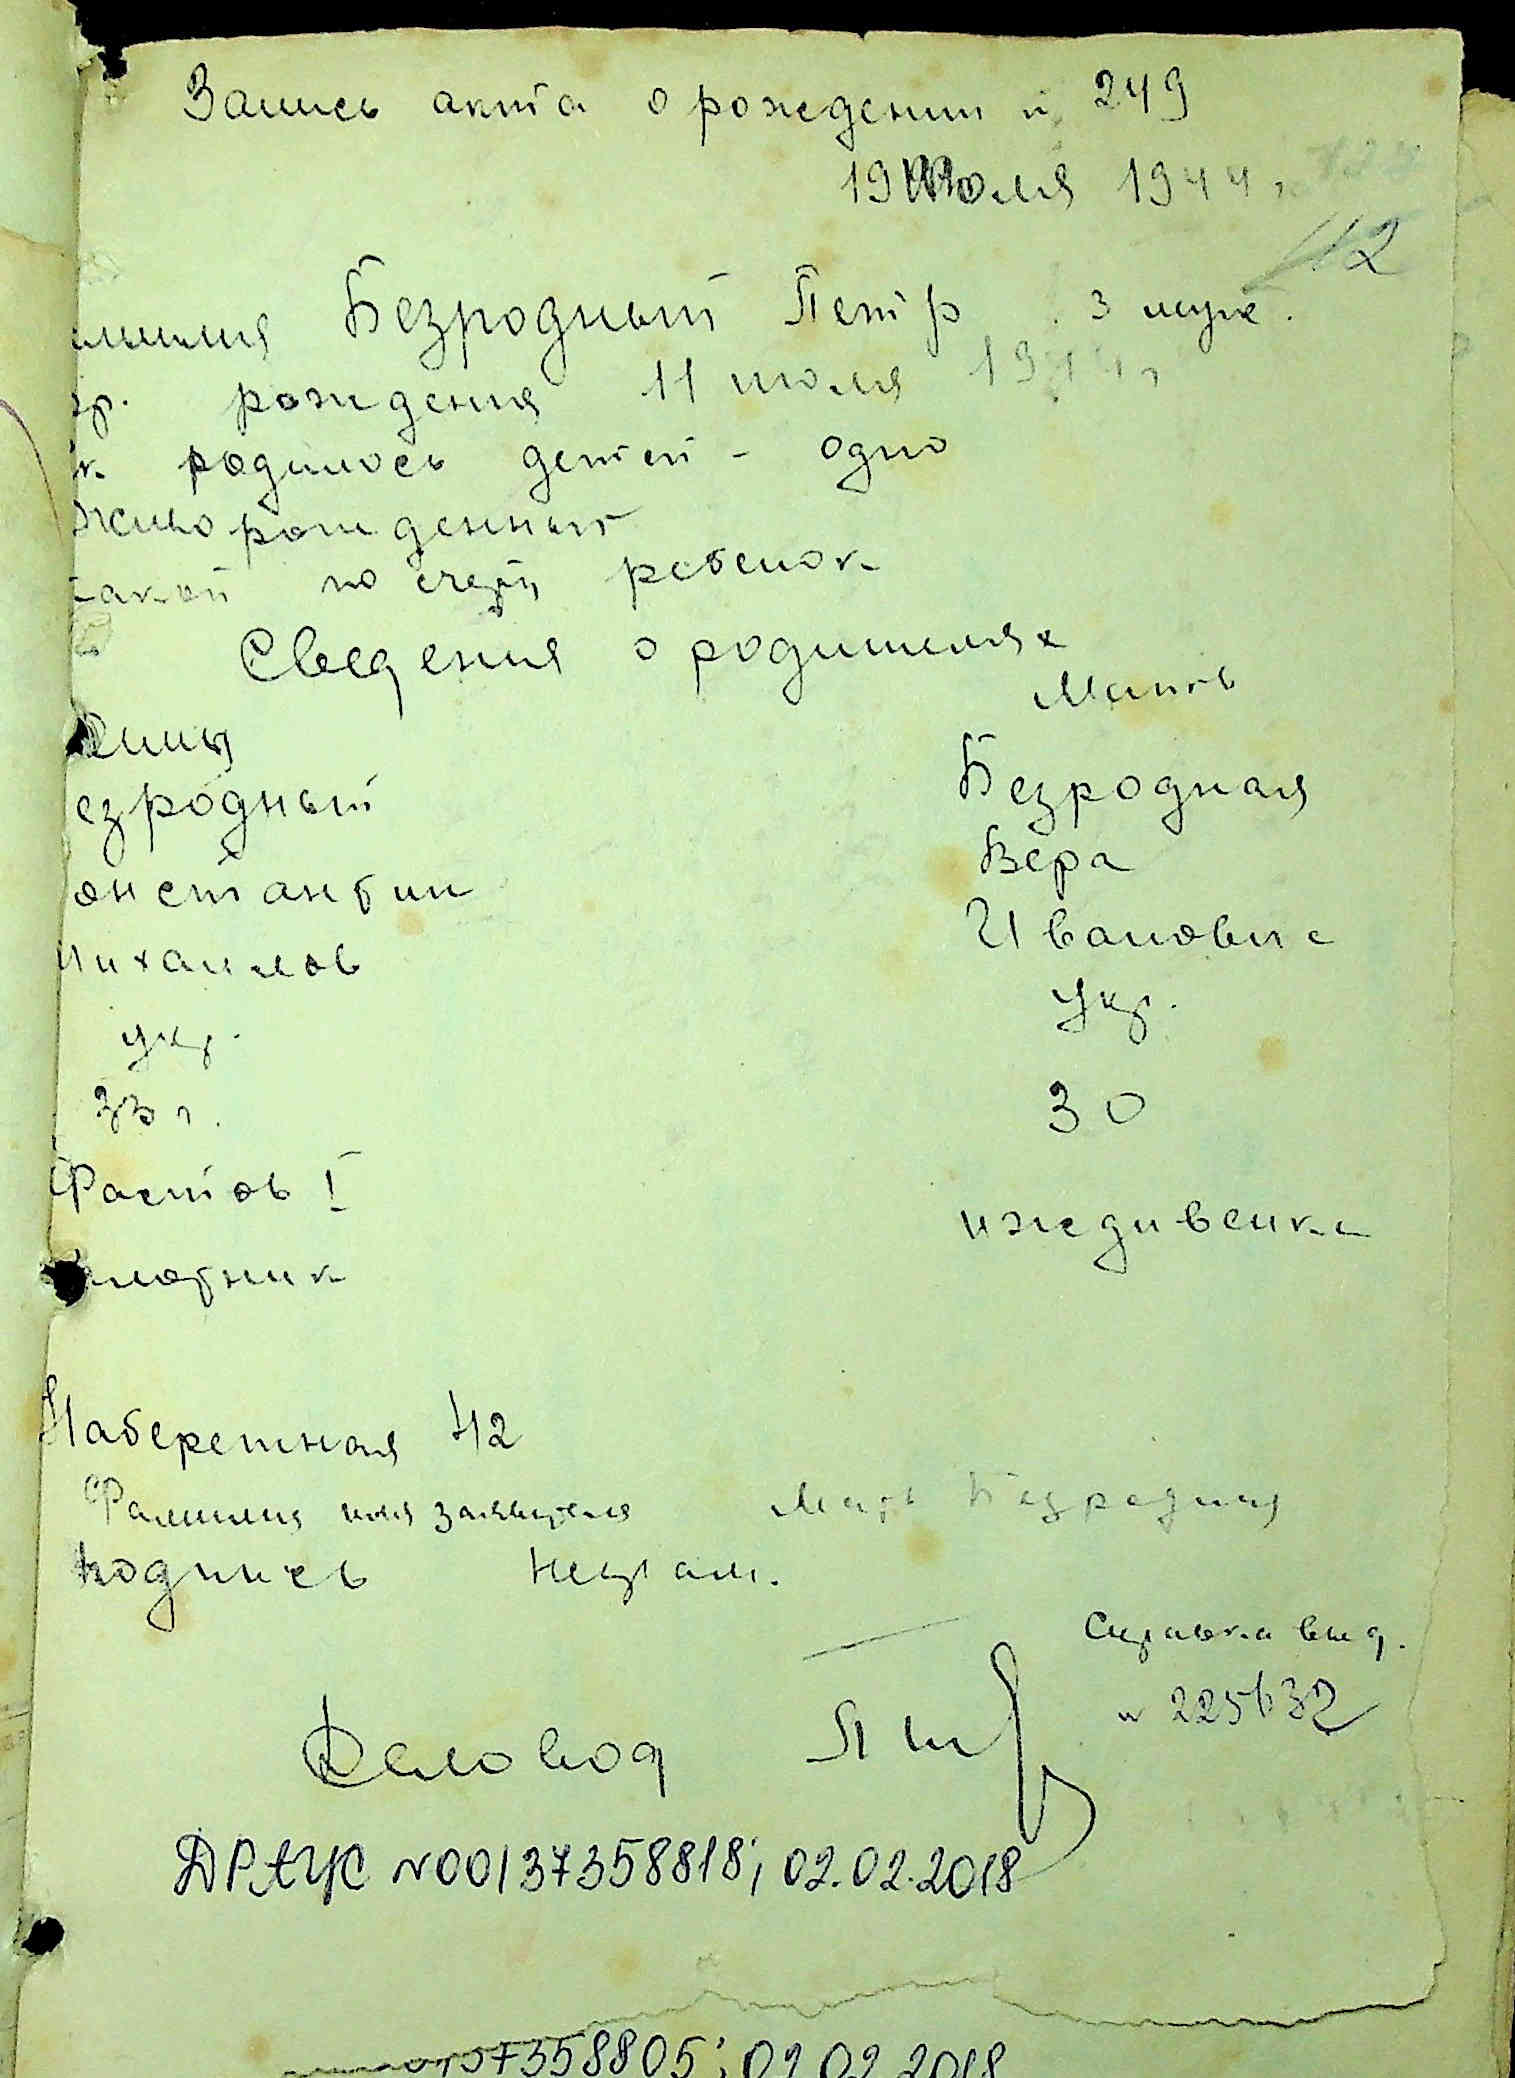 Запись акта о рождении н 249
19 Июля 1944 г
112
амилия Безродный Петр 3 муж.
вр. рождения 11 июля 1944 г
к. родилось детей - одно
живорожденный
какой по счету ребенок
Сведения о родителях
Мать
езродный Безродная
онстантин Вера
Михаилов Ивановна
укр. укр.
33 г. 30
Фастов I иждивенка
плотник
Набережная 42
Фамилия имя заявителя Мать Безродная
подпись неграм.
Справка выд.
н 225632
Деловод
ДРАЦС N00137358818; 02.02.2018
37358805; 02.02.2018